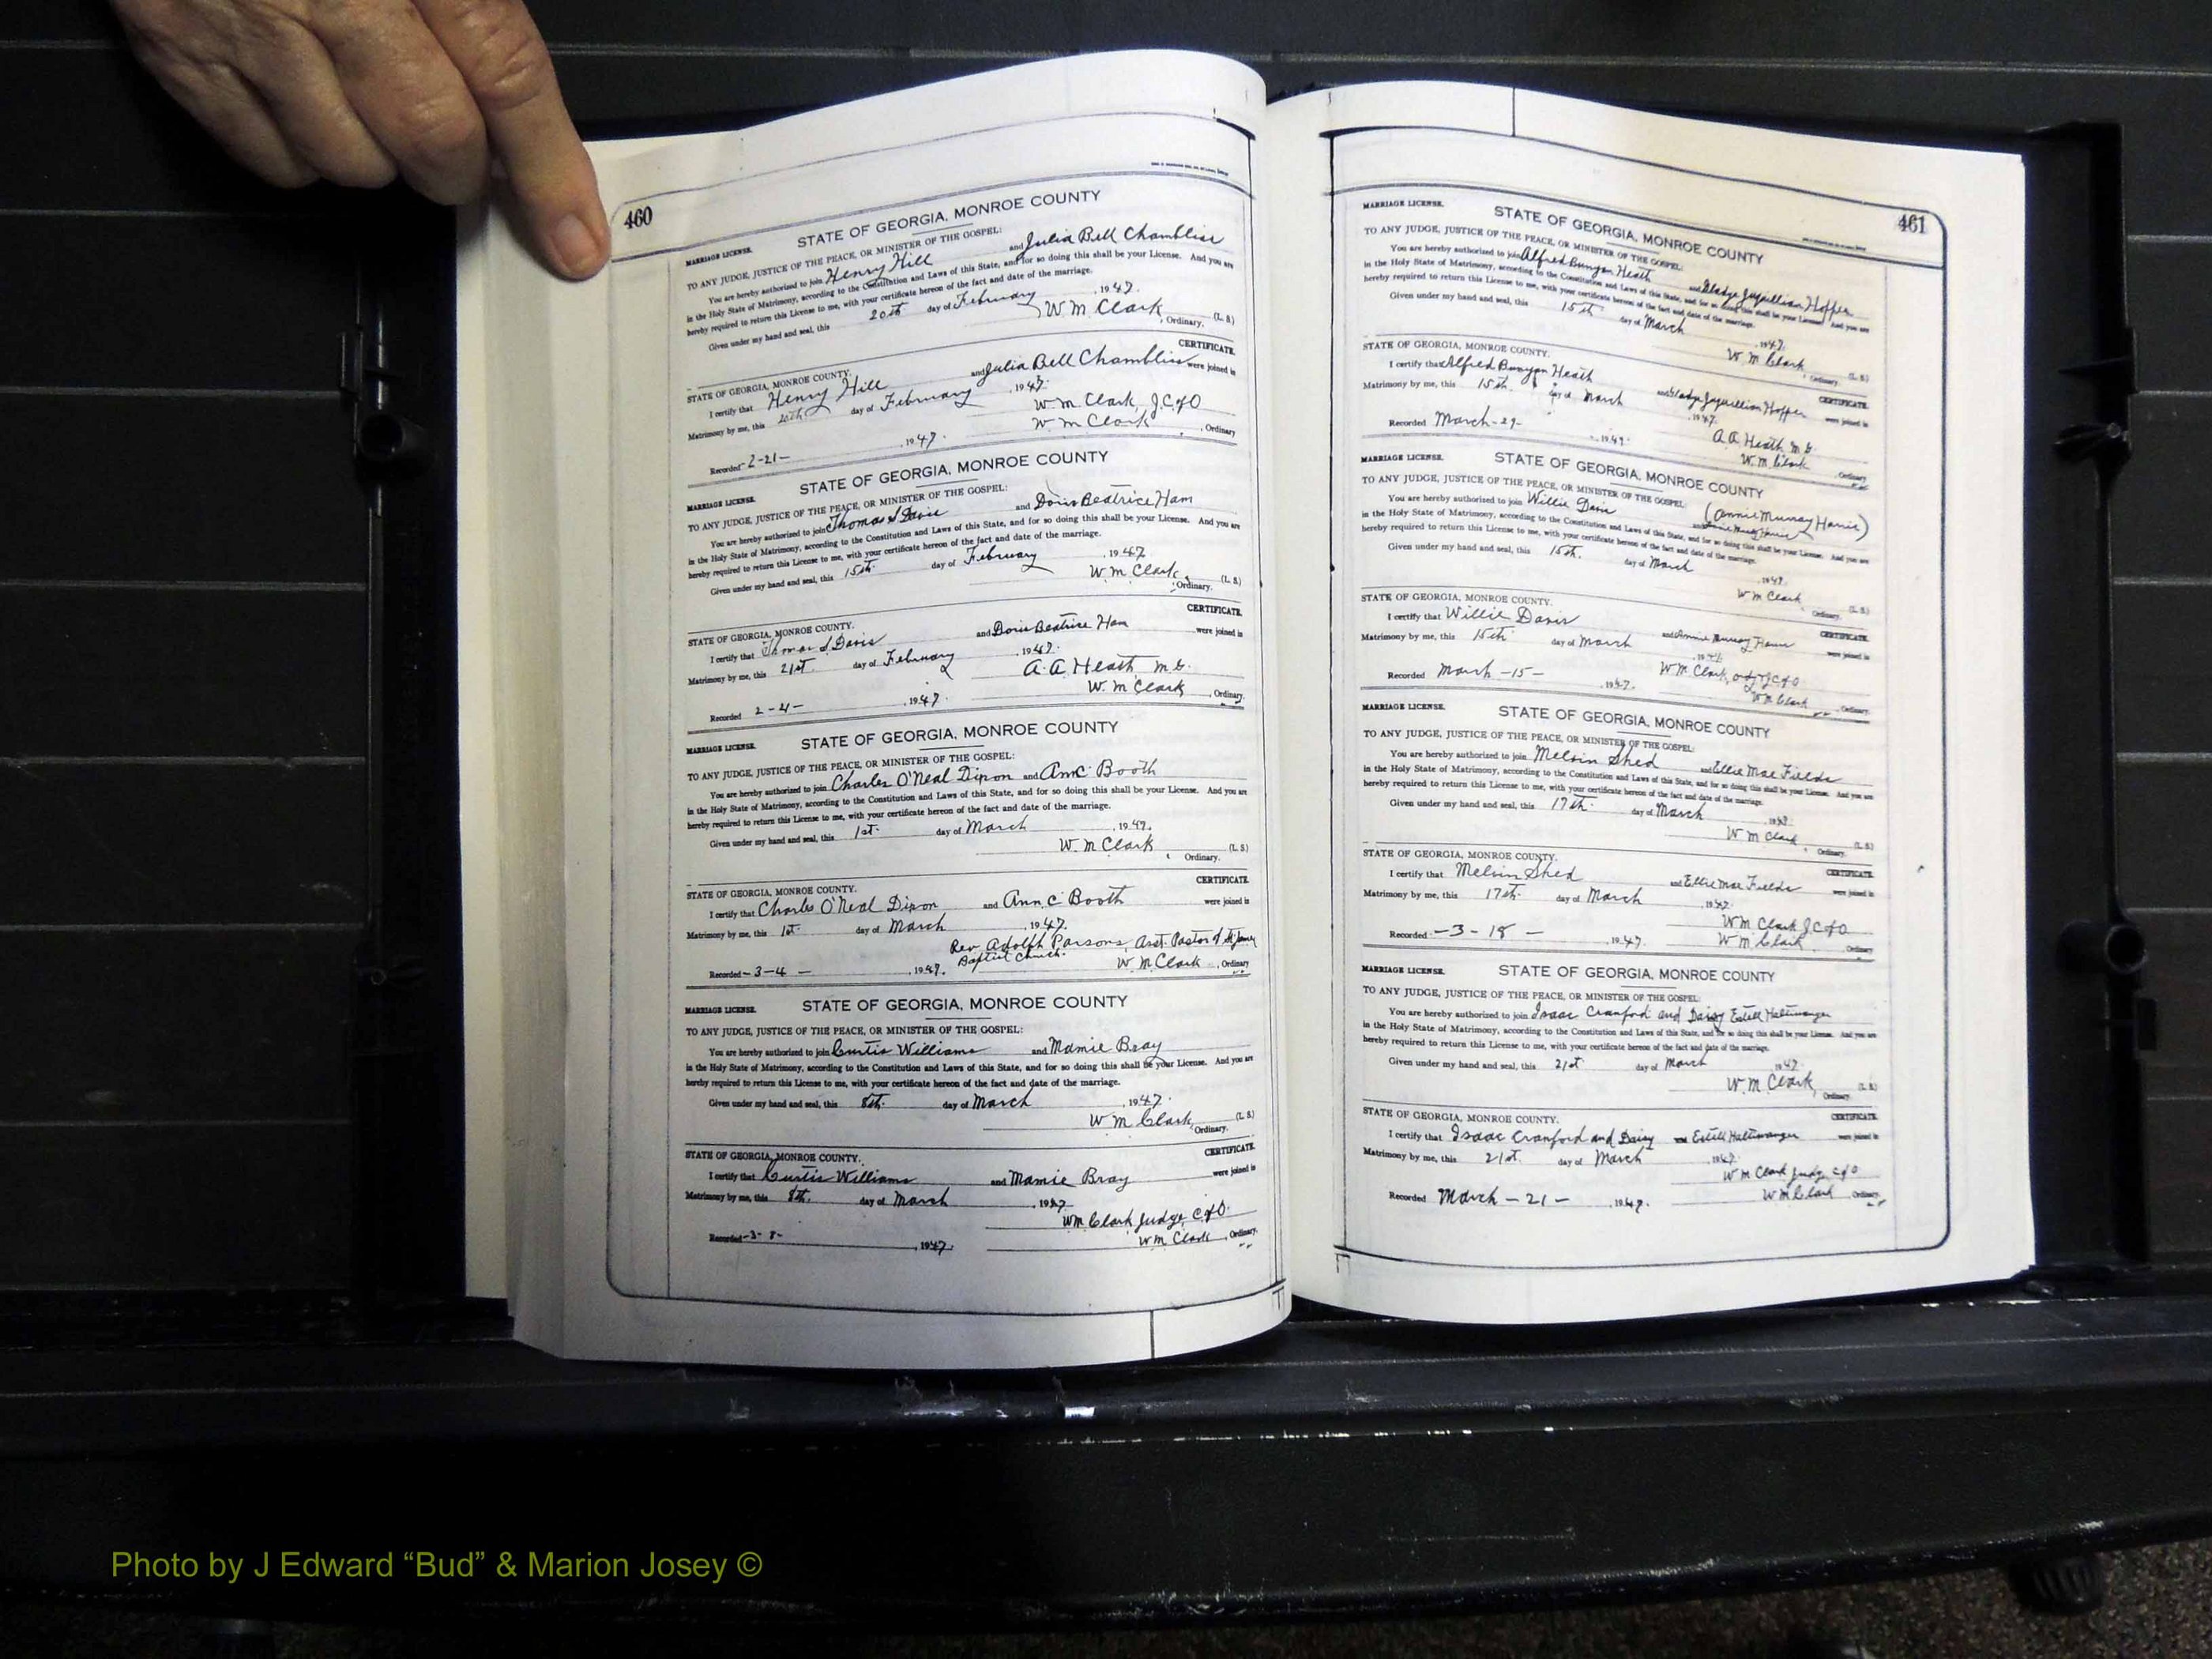 460
MARRIAGE LICENSE. STATE OF GEORGIA, MONROE COUNTY
TO ANY JUDGE, JUSTICE OF THE PEACE, OR MINISTER OF THE GOSPEL:
You are hereby authorized to join Henry Hill and Julia Bell Chambliss
in the Holy State of Matrimony, according to the Constitution and Laws of this State, and for so doing this shall be your License. And you are
hereby required to return this License to me, with your certificate hereon of the fact and date of the marriage.
Given under my hand and seal, this 20th day of February, 1947.
W M Clark, Ordinary. (L. S.)
STATE OF GEORGIA, MONROE COUNTY. CERTIFICATE.
I certify that Henry Hill and Julia Bell Chambliss were joined in
Matrimony by me, this 20th day of February, 1947.
W. M Clark, J.C.of O
Recorded 2-21-, 1947. W M Clark, Ordinary
MARRIAGE LICENSE. STATE OF GEORGIA, MONROE COUNTY
TO ANY JUDGE, JUSTICE OF THE PEACE, OR MINISTER OF THE GOSPEL:
You are hereby authorized to join Thomas S Davis and Doris Beatrice Ham
in the Holy State of Matrimony, according to the Constitution and Laws of this State, and for so doing this shall be your License. And you are
hereby required to return this License to me, with your certificate hereon of the fact and date of the marriage.
Given under my hand and seal, this 15th. day of February, 1947.
W M Clark, Ordinary. (L. S.)
STATE OF GEORGIA, MONROE COUNTY. CERTIFICATE.
I certify that Thomas S. Davis and Doris Beatrice Ham were joined in
Matrimony by me, this 21st. day of February, 1947.
A. A Heath, M.G.
Recorded 2-21-, 1947. W. M Clark, Ordinary.
MARRIAGE LICENSE. STATE OF GEORGIA, MONROE COUNTY
TO ANY JUDGE, JUSTICE OF THE PEACE, OR MINISTER OF THE GOSPEL:
You are hereby authorized to join Charles O'Neal Dixon and Ann C Booth
in the Holy State of Matrimony, according to the Constitution and Laws of this State, and for so doing this shall be your License. And you are
hereby required to return this License to me, with your certificate hereon of the fact and date of the marriage.
Given under my hand and seal, this 1st. day of March, 1947.
W. M Clark, Ordinary. (L. S)
STATE OF GEORGIA, MONROE COUNTY. CERTIFICATE.
I certify that Charles O'Neal Dixon and Ann. C Booth were joined in
Matrimony by me, this 1st. day of March, 1947.
Rev. Adolph Parsons, Asst. Pastor of St James
Baptist Church.
Recorded -3-4-, 1947. W M Clark, Ordinary
MARRIAGE LICENSE. STATE OF GEORGIA, MONROE COUNTY
TO ANY JUDGE, JUSTICE OF THE PEACE, OR MINISTER OF THE GOSPEL:
You are hereby authorized to join Curtis Williams and Mamie Bray
in the Holy State of Matrimony, according to the Constitution and Laws of this State, and for so doing this shall be your License. And you are
hereby required to return this License to me, with your certificate hereon of the fact and date of the marriage.
Given under my hand and seal, this 8th. day of March, 1947.
W M Clark, Ordinary. (L. S)
STATE OF GEORGIA, MONROE COUNTY. CERTIFICATE.
I certify that Curtis Williams and Mamie Bray were joined in
Matrimony by me, this 8th. day of March, 1947
W M Clark Judge, C of O.
Recorded -3-8-, 1947. W M Clark, Ordinary.
461
MARRIAGE LICENSE. STATE OF GEORGIA, MONROE COUNTY
TO ANY JUDGE, JUSTICE OF THE PEACE, OR MINISTER OF THE GOSPEL:
You are hereby authorized to join Alfred Bunyan Heath and Gladys Hopper
in the Holy State of Matrimony, according to the Constitution and Laws of this State, and for so doing this shall be your License. And you are
hereby required to return this License to me, with your certificate hereon of the fact and date of the marriage.
Given under my hand and seal, this 15th day of March, 1947.
W. M Clark, Ordinary. (L. S)
STATE OF GEORGIA, MONROE COUNTY. CERTIFICATE.
I certify that Alfred Bunyan Heath and Gladys Hopper were joined in
Matrimony by me, this 15th. day of March, 1947.
A. A. Heath M G.
Recorded March-29-, 1947. W. M Clark Ordinary
MARRIAGE LICENSE. STATE OF GEORGIA, MONROE COUNTY
TO ANY JUDGE, JUSTICE OF THE PEACE, OR MINISTER OF THE GOSPEL.
You are hereby authorized to join Willie Davis and (Annie Murray Harris)
in the Holy State of Matrimony, according to the Constitution and Laws of this State, and for so doing this shall be your License. And you are
hereby required to return this License to me, with your certificate hereon of the fact and date of the marriage.
Given under my hand and seal, this 15th. day of March, 1947.
W M Clark, Ordinary. (L. S.)
STATE OF GEORGIA, MONROE COUNTY. CERTIFICATE.
I certify that Willie Davis and Annie Murray Harris were joined in
Matrimony by me, this 15th day of March, 1947.
W M Clark,
Recorded March-15-, 1947. W M Clark, Ordinary.
MARRIAGE LICENSE. STATE OF GEORGIA, MONROE COUNTY
TO ANY JUDGE, JUSTICE OF THE PEACE, OR MINISTER OF THE GOSPEL:
You are hereby authorized to join Melvin Shed and Ellie Mae Fields
in the Holy State of Matrimony, according to the Constitution and Laws of this State, and for so doing this shall be your License. And you are
hereby required to return this License to me, with your certificate hereon of the fact and date of the marriage.
Given under my hand and seal, this 17th. day of March, 1947.
W M Clark, Ordinary. (L. S)
STATE OF GEORGIA, MONROE COUNTY. CERTIFICATE.
I certify that Melvin Shed and Ellie Mae Fields were joined in
Matrimony by me, this 17th. day of March, 1947.
W M Clark J C of O
Recorded -3-18-, 1947. W M Clark, Ordinary
MARRIAGE LICENSE. STATE OF GEORGIA, MONROE COUNTY
TO ANY JUDGE, JUSTICE OF THE PEACE, OR MINISTER OF THE GOSPEL:
You are hereby authorized to join Isaac Cranford and Daisy Estell Haltiwanger
in the Holy State of Matrimony, according to the Constitution and Laws of this State, and for so doing this shall be your License. And you are
hereby required to return this License to me, with your certificate hereon of the fact and date of the marriage.
Given under my hand and seal, this 21st day of March, 1947.
W. M. Clark, Ordinary. (L. S.)
STATE OF GEORGIA, MONROE COUNTY. CERTIFICATE.
I certify that Isaac Cranford and Daisy and Estell Haltiwanger were joined in
Matrimony by me, this 21st. day of March, 1947.
W M Clark Judge, C of O
Recorded March-21-, 1947. W M Clark Ordinary.
Photo by J Edward “Bud” & Marion Josey ©